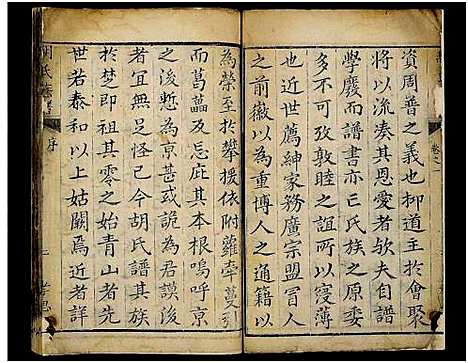 資周普之義也抑道主於會聚
將以流湊其恩愛者欤夫自譜
學廢而譜書亦亡氏族之原委
多不可攷敦睦之誼所以寖薄
也近世薦紳家務廣宗盟冒人
之前徽以為重博人之通籍以
為榮至於攀援依附蘿牽蔓引
而葛藟及忘庇其本根嗚呼京
之後慙為京甚或詭為君謨後
者宜無足怪已今胡氏譜其族
於楚即祖其零之始青山者先
世若泰和以上姑闕焉近者詳
氏族譜
序